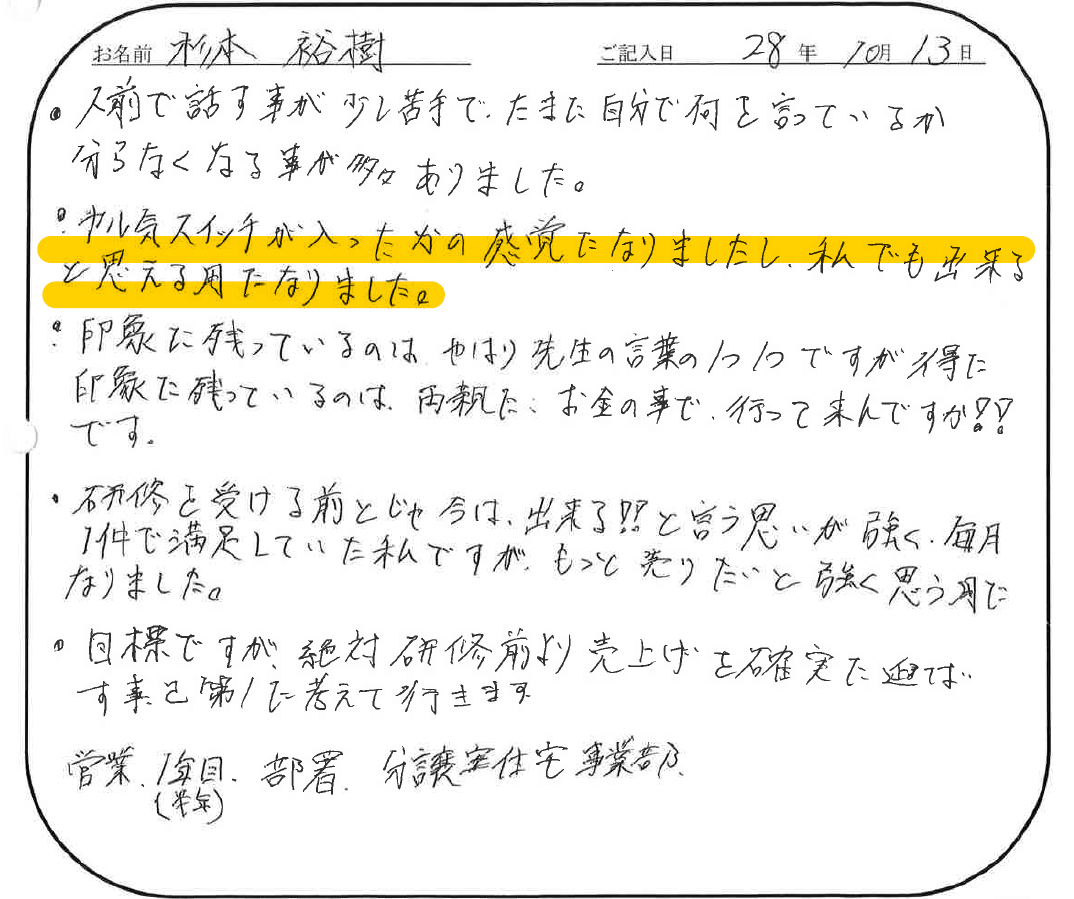 お名前 杉本 裕樹 ご記入日 28年 10月 13日
・人前で話す事が少し苦手で、たまに自分で何を言っているか
分らなくなる事が多々ありました。
・ヤル気スイッチが入ったかの感覚になりましたし、私でも出来る
と思える用になりました。
・印象に残っているのは、やはり先生の言葉の1つ1つですが、得に
印象に残っているのは、両親に、お金の事で、行って来んですか!!
です。
・研修を受ける前とじゃ今は、出来る!!と言う思いが強く、毎月
1件で満足していた私ですが、もっと売りたいと強く思う用に
なりました。
・目標ですが、絶対研修前より売上げを確実に延ば
す事を第1に考えて行きます
営業、1年目、部署、分譲住宅事業部、
(半年)